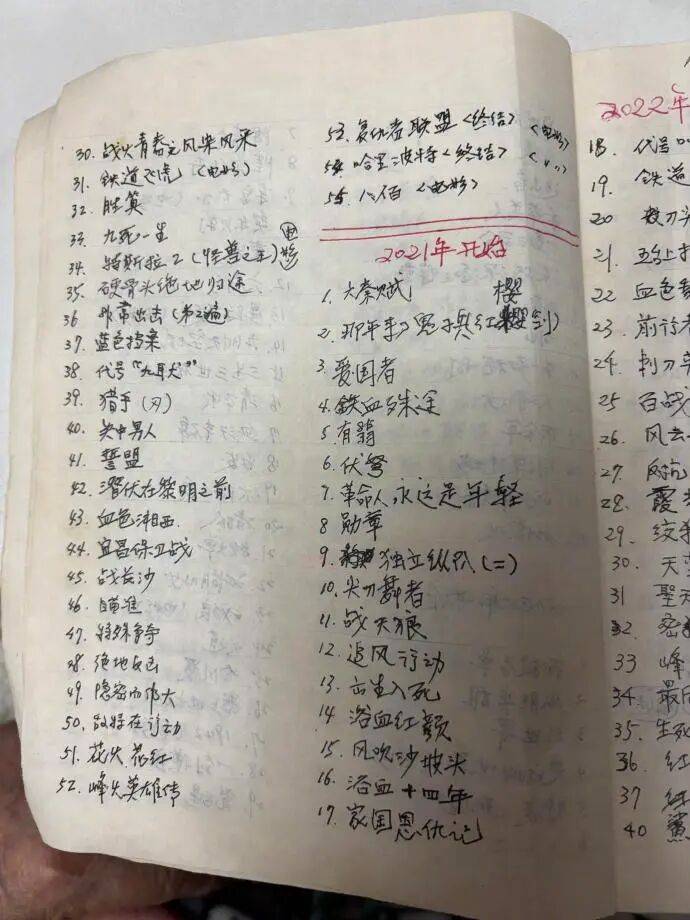 30. 战火青春之风柴风采
31. 鉄道飞虎〈电影〉
32. 胜算
33. 九死一生
34. 特斯拉2(怪兽之王)电影
35. 硬骨头绝地归途
36 非常出击(第2遍)
37. 蓝色档案
38. 代号"九耳犬"
39. 猎手(刃)
40. 关中男人
41. 誓盟
42. 潜伏在黎明之前
43. 血色湘西
44. 宜昌保卫战
45. 战长沙
46. 瞄准
47. 特殊争夺
48. 绝地反击
49. 隐密而伟大
50. 敌特在行动
51. 花火花红
52. 峰火英雄传
53. 复仇者联盟〈终结〉〈电影〉
54. 哈里波特〈终结〉〈〃〉
55. 八佰〈电影〉
2021年开始
1. 大秦赋
2. 那年李 兵(红樱剑)
3. 爱国者
4. 鉄血殊途
5 有翡
6. 伏弩
7. 革命人永远是年轻
8 勋章
9. 独立纵队(二)
10. 尖刀舞者
11. 战天狼
12. 追风行动
13. 出生入死
14. 浴血红颜
15. 风吹沙坡头
16. 浴血十四年
17. 家国恩仇记
2022年
18. 代号
19. 鉄道
20
21.
22 血色
23. 前行者
24. 刺刀
25 百战
26. 风云
27. 反抗
28. 霞
29. 绞
30. 天
31 聖天
32. 密
33 峰
34. 最后
35. 生死
36. 红
37
40 鯊